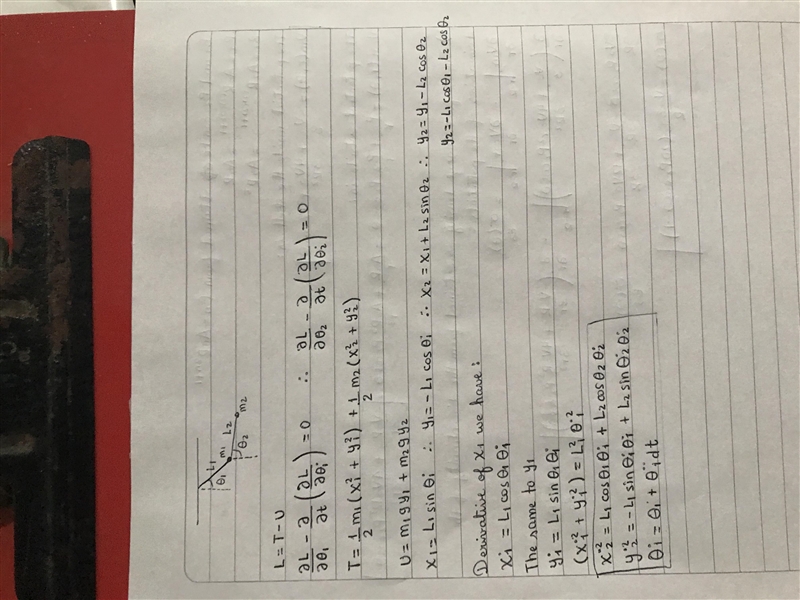 L1
θ1 m1 L2
θ2 m2
L = T - U
∂L/∂θ1 - ∂/∂t (∂L/∂θ̇1) = 0 ∴ ∂L/∂θ2 - ∂/∂t (∂L/∂θ̇2) = 0
T = 1/2 m1 (ẋ1² + ẏ1²) + 1/2 m2 (ẋ2² + ẏ2²)
U = m1 g y1 + m2 g y2
x1 = L1 sin θ1 ∴ y1 = - L1 cos θ1 ∴ x2 = x1 + L2 sin θ2 ∴ y2 = y1 - L2 cos θ2
y2 = - L1 cos θ1 - L2 cos θ2
Derivative of x1 we have:
ẋ1 = L1 cos θ1 θ̇1
The same to y1
ẏ1 = L1 sin θ1 θ̇1
(ẋ1² + ẏ1²) = L1² θ̇1²
ẋ2² = L1 cos θ1 θ̇1 + L2 cos θ2 θ̇2
ẏ2² = - L1 sin θ̇1 θ̇1 + L2 sin θ̇2 θ̇2
θ̇1 = θ̇1 + θ̈1 dt